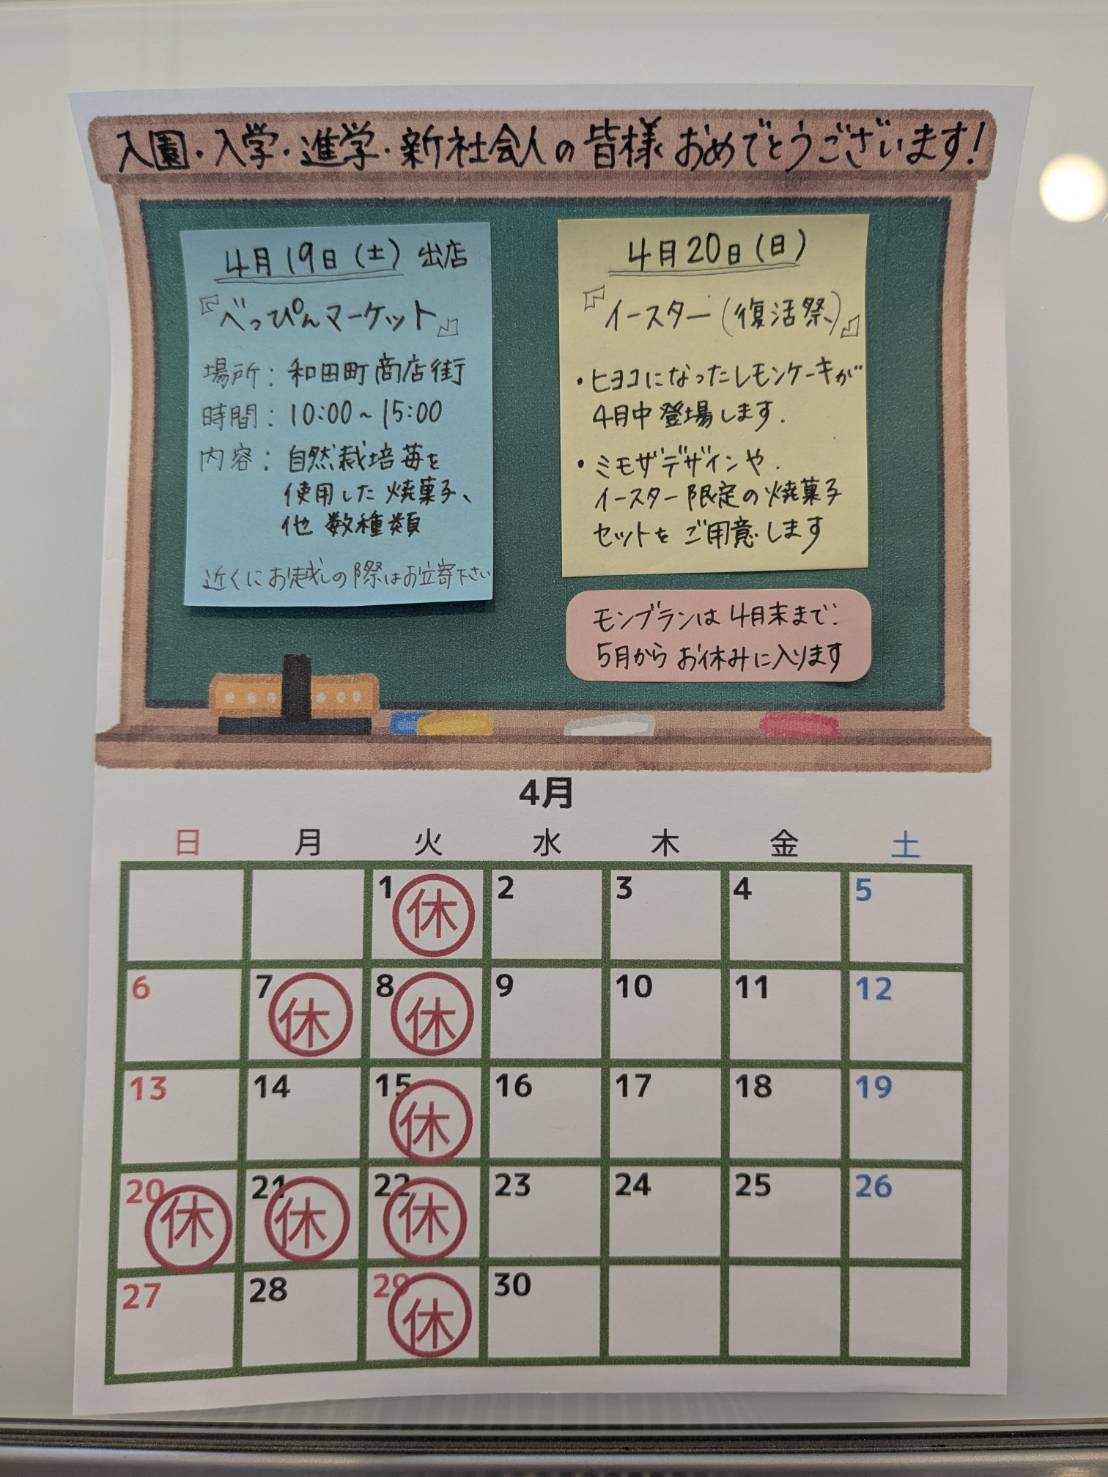 入園・入学・進学・新社会人の皆様おめでとうございます!
4月19日(土)出店
『べっぴんマーケット』
場所:和田町商店街
時間:10:00~15:00
内容:自然栽培苺を
使用した焼菓子、
他数種類
近くにお越しの際はお立寄下さい
4月20日(日)
『イースター(復活祭)』
・ヒヨコになったレモンケーキが
4月中登場します.
・ミモザデザインや.
イースター限定の焼菓子
セットをご用意します
モンブランは4月末まで.
5月からお休みに入ります
4月
日 月 火 水 木 金 土
1 休 2 3 4 5
6 7 休 8 休 9 10 11 12
13 14 15 休 16 17 18 19
20 休 21 休 22 休 23 24 25 26
27 28 29 休 30